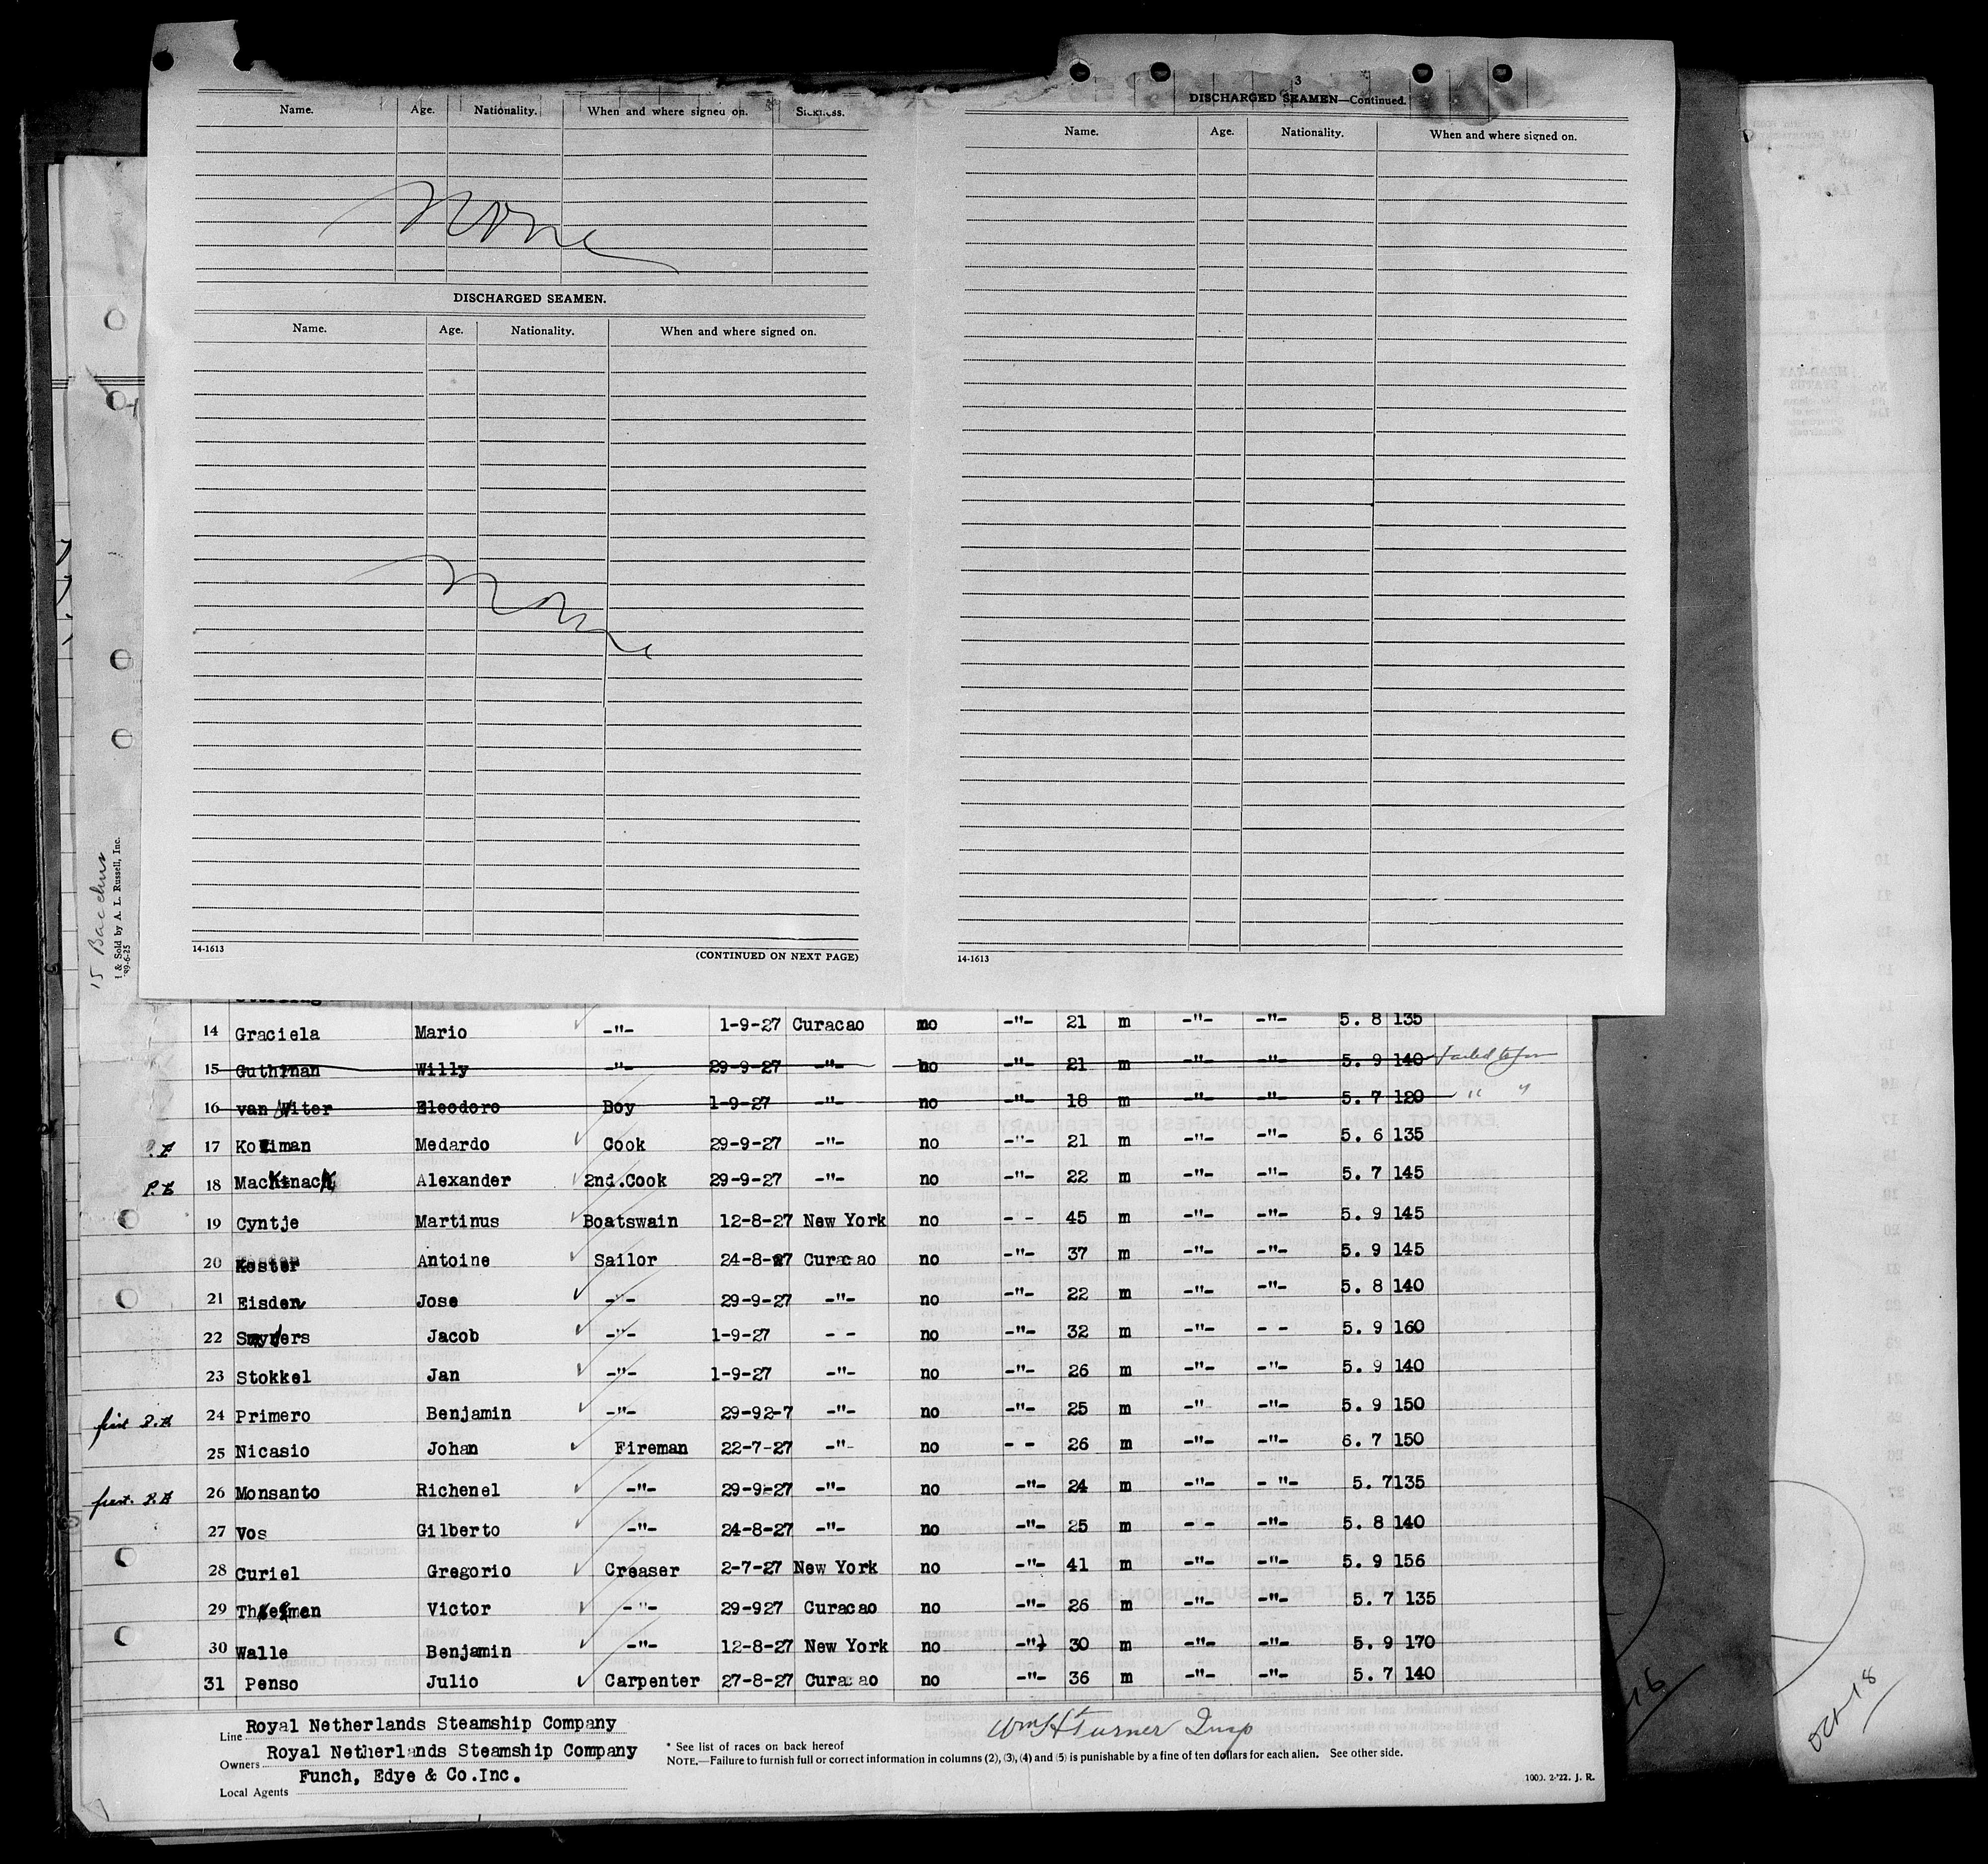 Name. Age. Nationality. When and where signed on. Sickness.
None
DISCHARGED SEAMEN.
Name. Age. Nationality. When and where signed on.
None
14-1613 (CONTINUED ON NEXT PAGE)
3
DISCHARGED SEAMEN—Continued.
Name. Age. Nationality. When and where signed on.
14-1613
15 Bacchus
& Sold by A. L. Russell, Inc.
14 Graciela Mario -"- 1-9-27 Curacao no -"- 21 m -"- -"- 5. 8 135
15 Guthman Willy -"- 29-9-27 -"- no -"- 21 m -"- -"- 5. 9 140 failed to join
16 van Uiter Eleodoro Boy 1-9-27 -"- no -"- 18 m -"- -"- 5. 7 120 " "
P.E 17 Koliman Medardo Cook 29-9-27 -"- no -"- 21 m -"- -"- 5. 6 135
P.E 18 Mackinack Alexander 2nd.Cook 29-9-27 -"- no -"- 22 m -"- -"- 5. 7 145
19 Cyntje Martinus Boatswain 12-8-27 New York no - - 45 m -"- -"- 5. 9 145
20 Kester Antoine Sailor 24-8-27 Curacao no -"- 37 m -"- -"- 5. 9 145
21 Eisden Jose -"- 29-9-27 -"- no -"- 22 m -"- -"- 5. 8 140
22 Snyders Jacob -"- 1-9-27 - - no -"- 32 m -"- - - 5. 9 160
23 Stokkel Jan -"- 1-9-27 -"- no -"- 26 m -"- -"- 5. 9 140
first P.E 24 Primero Benjamin -"- 29-92-7 -"- no -"- 25 m -"- -"- 5. 9 150
25 Nicasio Johan Fireman 22-7-27 -"- no - - 26 m -"- -"- 6. 7 150
first P.E 26 Monsanto Richenel -"- 29-9-27 -"- no -"- 24 m -"- - "- 5. 7 135
27 Vos Gilberto -"- 24-8-27 -"- no -"- 25 m - - -"- 5. 8 140
28 Curiel Gregorio Creaser 2-7-27 New York no -"- 41 m -"- -"- 5. 9 156
29 Victor -"- 29-927 Curacao no -"- 26 m -"- -"- 5. 7 135
30 Walle Benjamin -"- 12-8-27 New York no -"- 30 m -"- -"- 5. 9 170
31 Penso Julio Carpenter 27-8-27 Curacao no -"- 36 m -"- -"- 5. 7 140
Line Royal Netherlands Steamship Company
Owners Royal Netherlands Steamship Company
Local Agents Funch, Edye & Co.Inc.
Wm H Turner Insp
* See list of races on back hereof
NOTE.—Failure to furnish full or correct information in columns (2), (3), (4) and (5) is punishable by a fine of ten dollars for each alien. See other side.
1000. 2-'22. J. R.
16
Oct-18